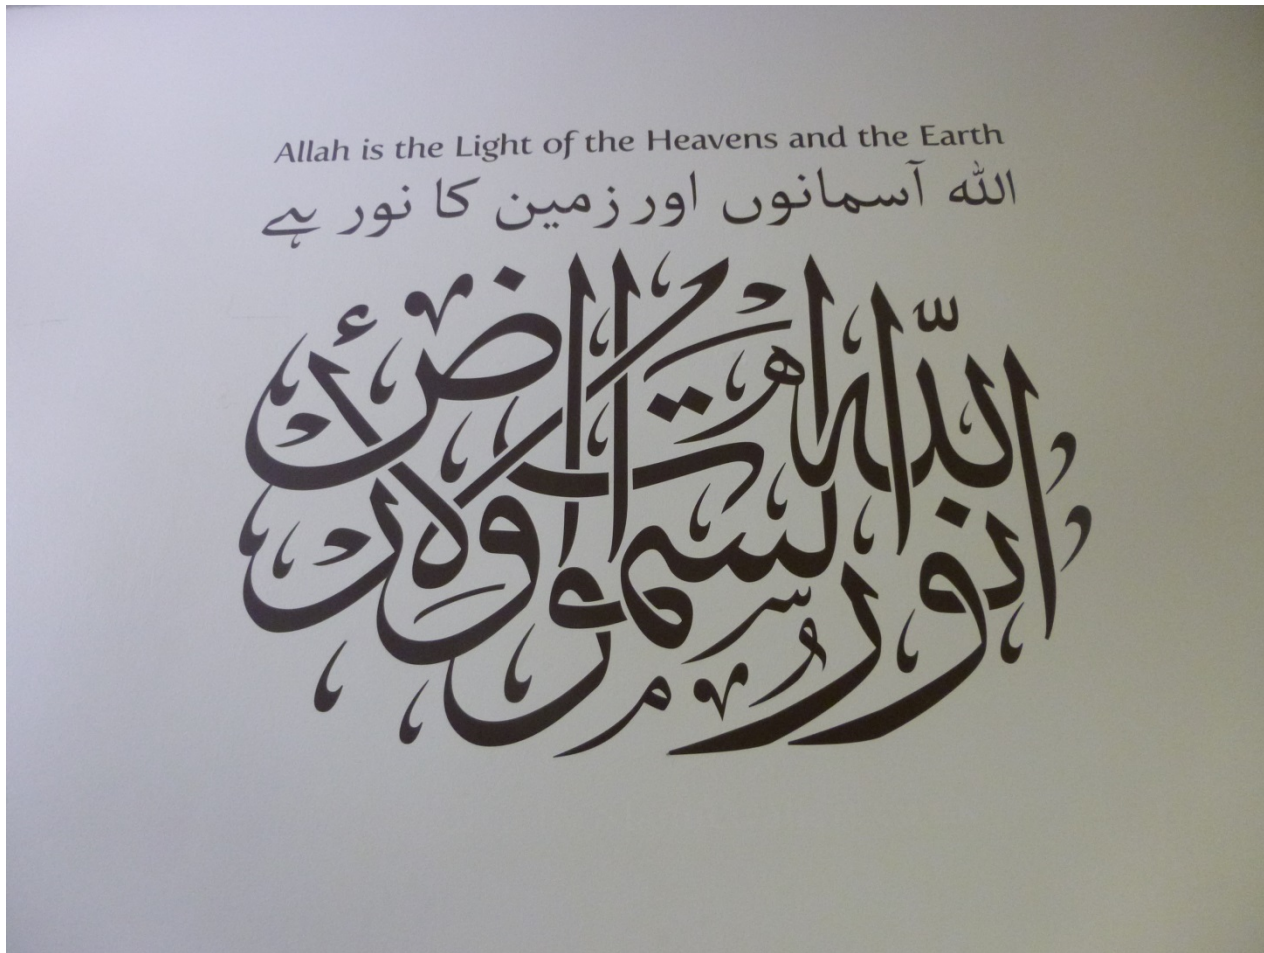 Allah is the Light of the Heavens and the Earth
اللہ آسمانوں اور زمین کا نور ہے
الله نور السموات والأرض